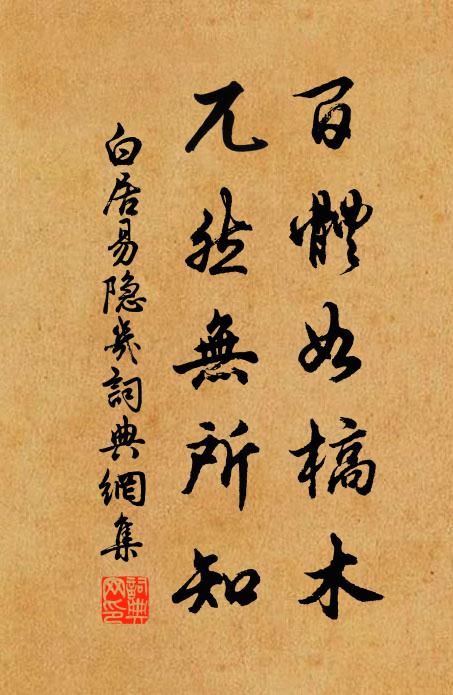 百體如槁木
兀然無所知
白居易隐几詞典網集
詞典网印